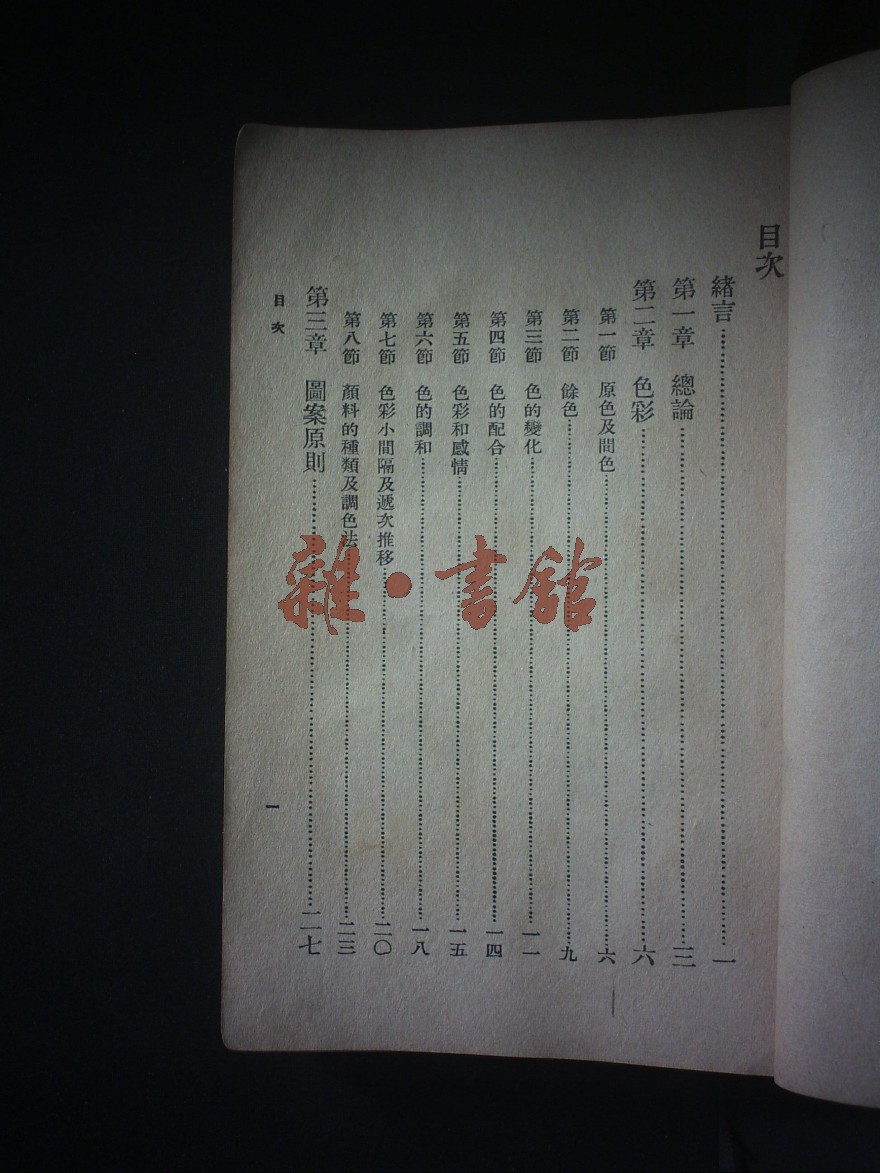 目次
緒言……一
第一章 總論……三
第二章 色彩……六
第一節 原色及間色……六
第二節 餘色……九
第三節 色的變化……一一
第四節 色的配合……一四
第五節 色彩和感情……一五
第六節 色的調和……一八
第七節 色彩小間隔及遞次推移……二〇
第八節 顏料的種類及調色法……二三
第三章 圖案原則……二七
目次
一
雜·書館